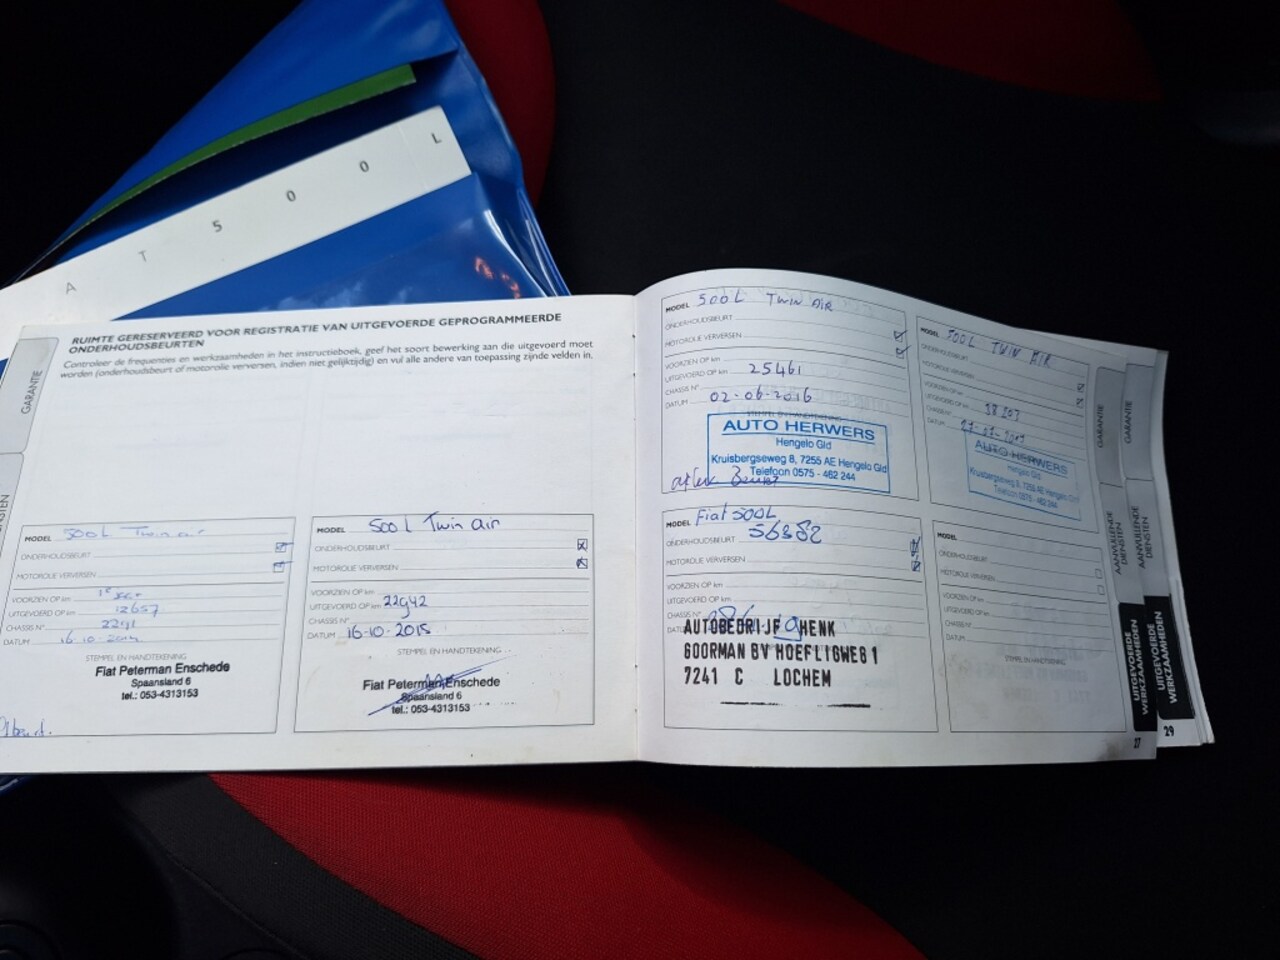 A T 5 0 0 L
GARANTIE
RUIMTE GERESERVEERD VOOR REGISTRATIE VAN UITGEVOERDE GEPROGRAMMEERDE
ONDERHOUDSBEURTEN
Controleer de frequenties en werkzaamheden in het instructieboek, geef het soort bewerking aan die uitgevoerd moet
worden (onderhoudsbeurt of motorolie verversen, indien niet gelijktijdig) en vul alle andere van toepassing zijnde velden in.
MODEL 500L Twin air
ONDERHOUDSBEURT
MOTOROLIE VERVERSEN
VOORZIEN OP km
UITGEVOERD OP km 12657
CHASSIS N°
DATUM 16-10-2014
STEMPEL EN HANDTEKENING
Fiat Peterman Enschede
Spaansland 6
tel.: 053-4313153
MODEL 500L Twin air
ONDERHOUDSBEURT
MOTOROLIE VERVERSEN
VOORZIEN OP km
UITGEVOERD OP km 22942
CHASSIS N°
DATUM 16-10-2015
STEMPEL EN HANDTEKENING
Fiat Peterman Enschede
Spaansland 6
tel.: 053-4313153
MODEL 500L TWIN AIR
ONDERHOUDSBEURT
MOTOROLIE VERVERSEN
VOORZIEN OP km
UITGEVOERD OP km 25461
CHASSIS N°
DATUM 02-06-2016
STEMPEL EN HANDTEKENING
AUTO HERWERS
Hengelo Gld
Kruisbergseweg 8, 7255 AE Hengelo Gld
Telefoon 0575 - 462 244
MODEL 500L TWIN AIR
ONDERHOUDSBEURT
MOTOROLIE VERVERSEN
VOORZIEN OP km
UITGEVOERD OP km
CHASSIS N°
DATUM
AUTO HERWERS
Hengelo Gld
Kruisbergseweg 8, 7255 AE Hengelo Gld
Telefoon 0575 - 462 244
MODEL Fiat 500L
ONDERHOUDSBEURT 56382
MOTOROLIE VERVERSEN
VOORZIEN OP km
UITGEVOERD OP km
CHASSIS N°
AUTOBEDRIJF HENK
GOORMAN BV HOEFLIGWEG 1
7241 C LOCHEM
MODEL
ONDERHOUDSBEURT
MOTOROLIE VERVERSEN
VOORZIEN OP km
UITGEVOERD OP km
CHASSIS N°
DATUM
STEMPEL EN HANDTEKENING
GARANTIE
AANVULLENDE
DIENSTEN
UITGEVOERDE
WERKZAAMHEDEN
27
GARANTIE
AANVULLENDE
DIENSTEN
UITGEVOERDE
WERKZAAMHEDEN
29